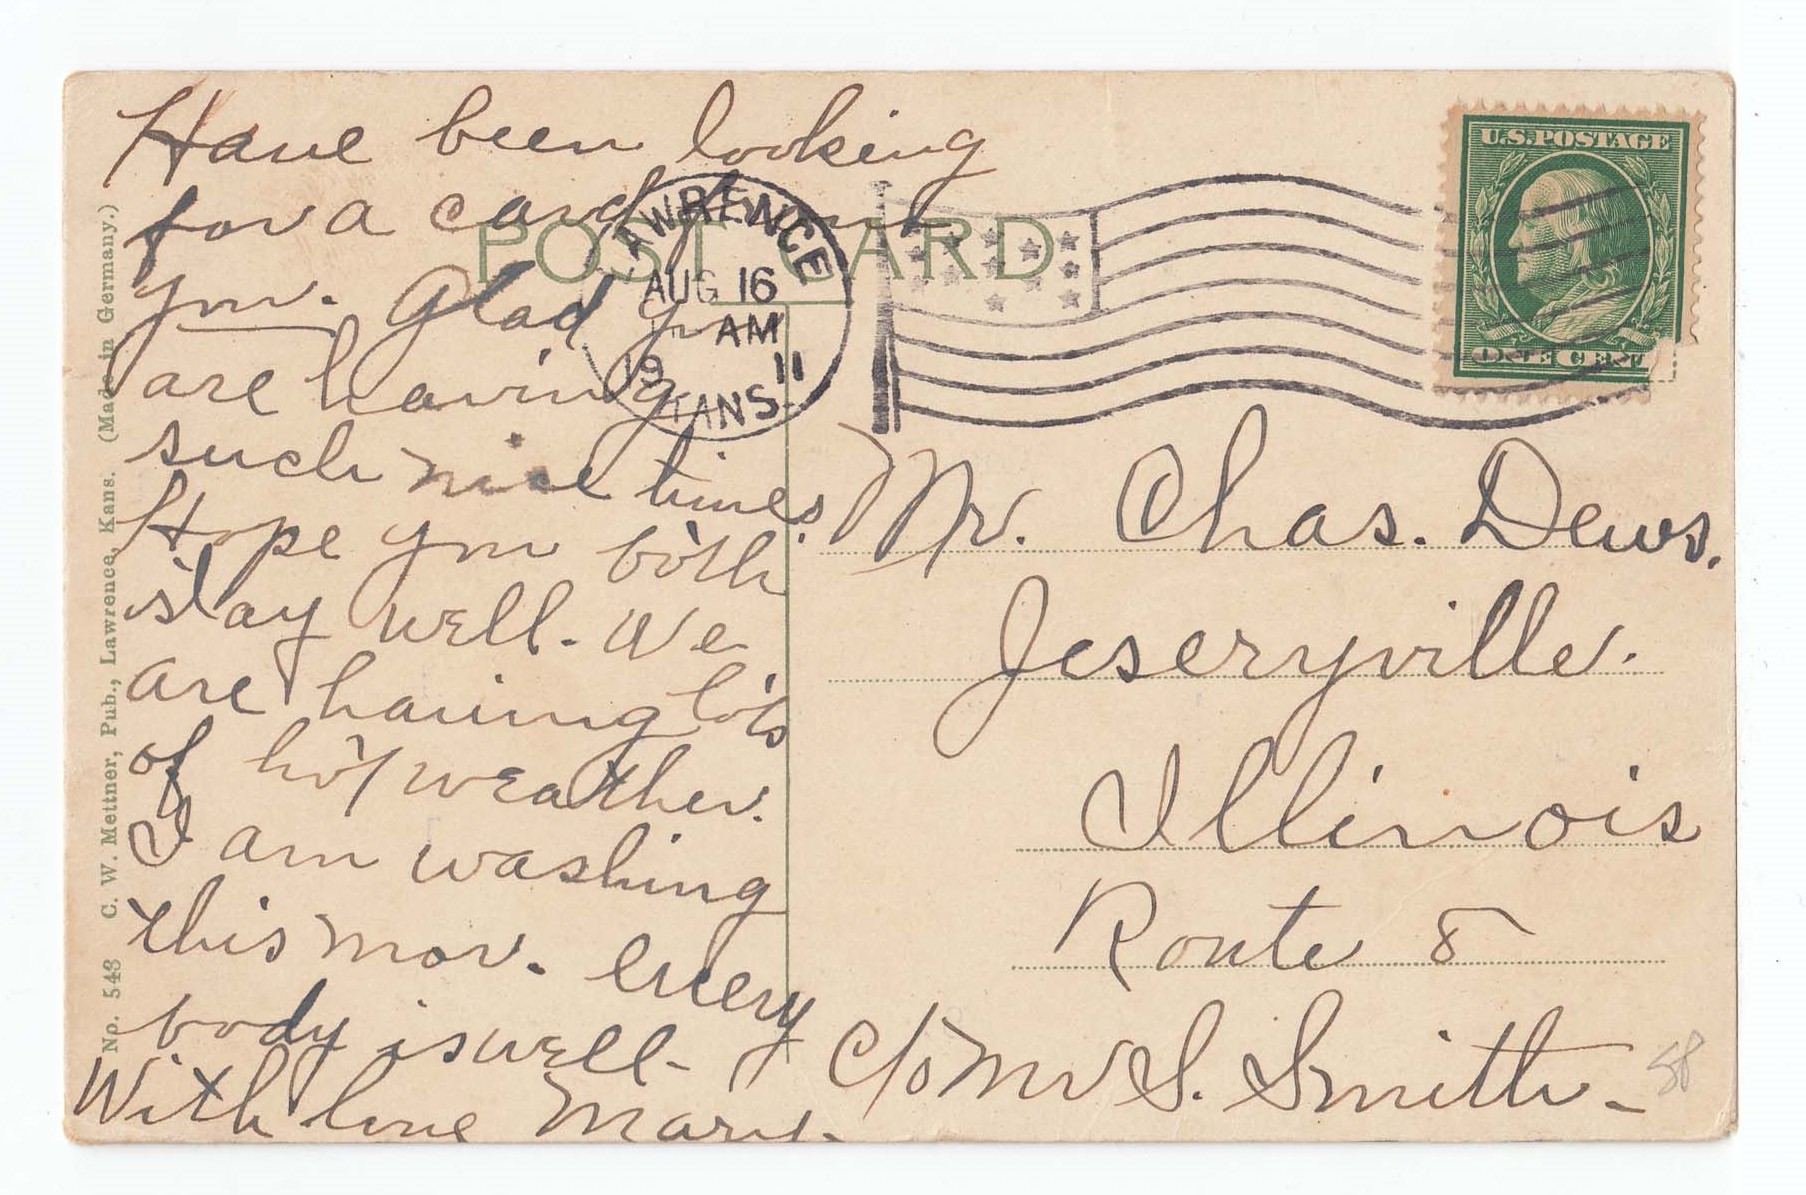 Have been looking
for a card from
you. Glad you
are having
such nice times.
Hope you both
stay well. We
are having lots
of hot weather.
I am washing
this mor. Every
body is well.
With love Mary.
POST CARD
LAWRENCE
AUG 16
AM
19 11
KANS.
U.S. POSTAGE
ONE CENT
Mr. Chas. Dews.
Jeseryville.
Illinois
Route 8
c/o Mr S. Smith
58
No. 543 C. W. Mettner, Pub., Lawrence, Kans. (Made in Germany.)